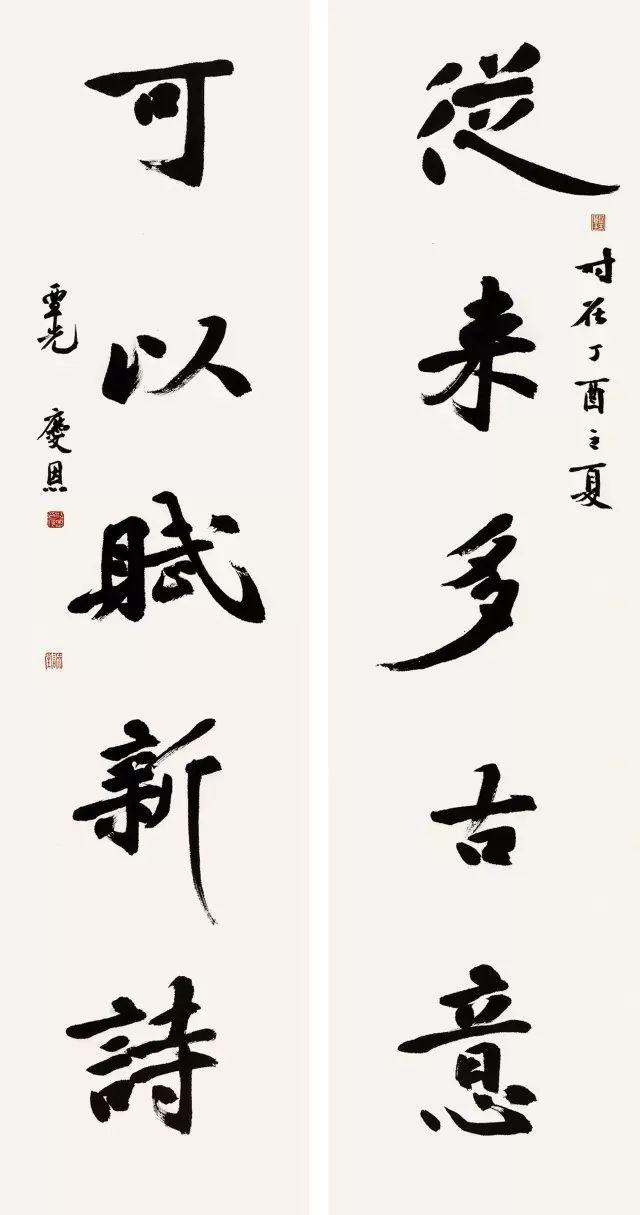 從来多古意
时在丁酉之夏
可以賦新詩
覃光 慶恩